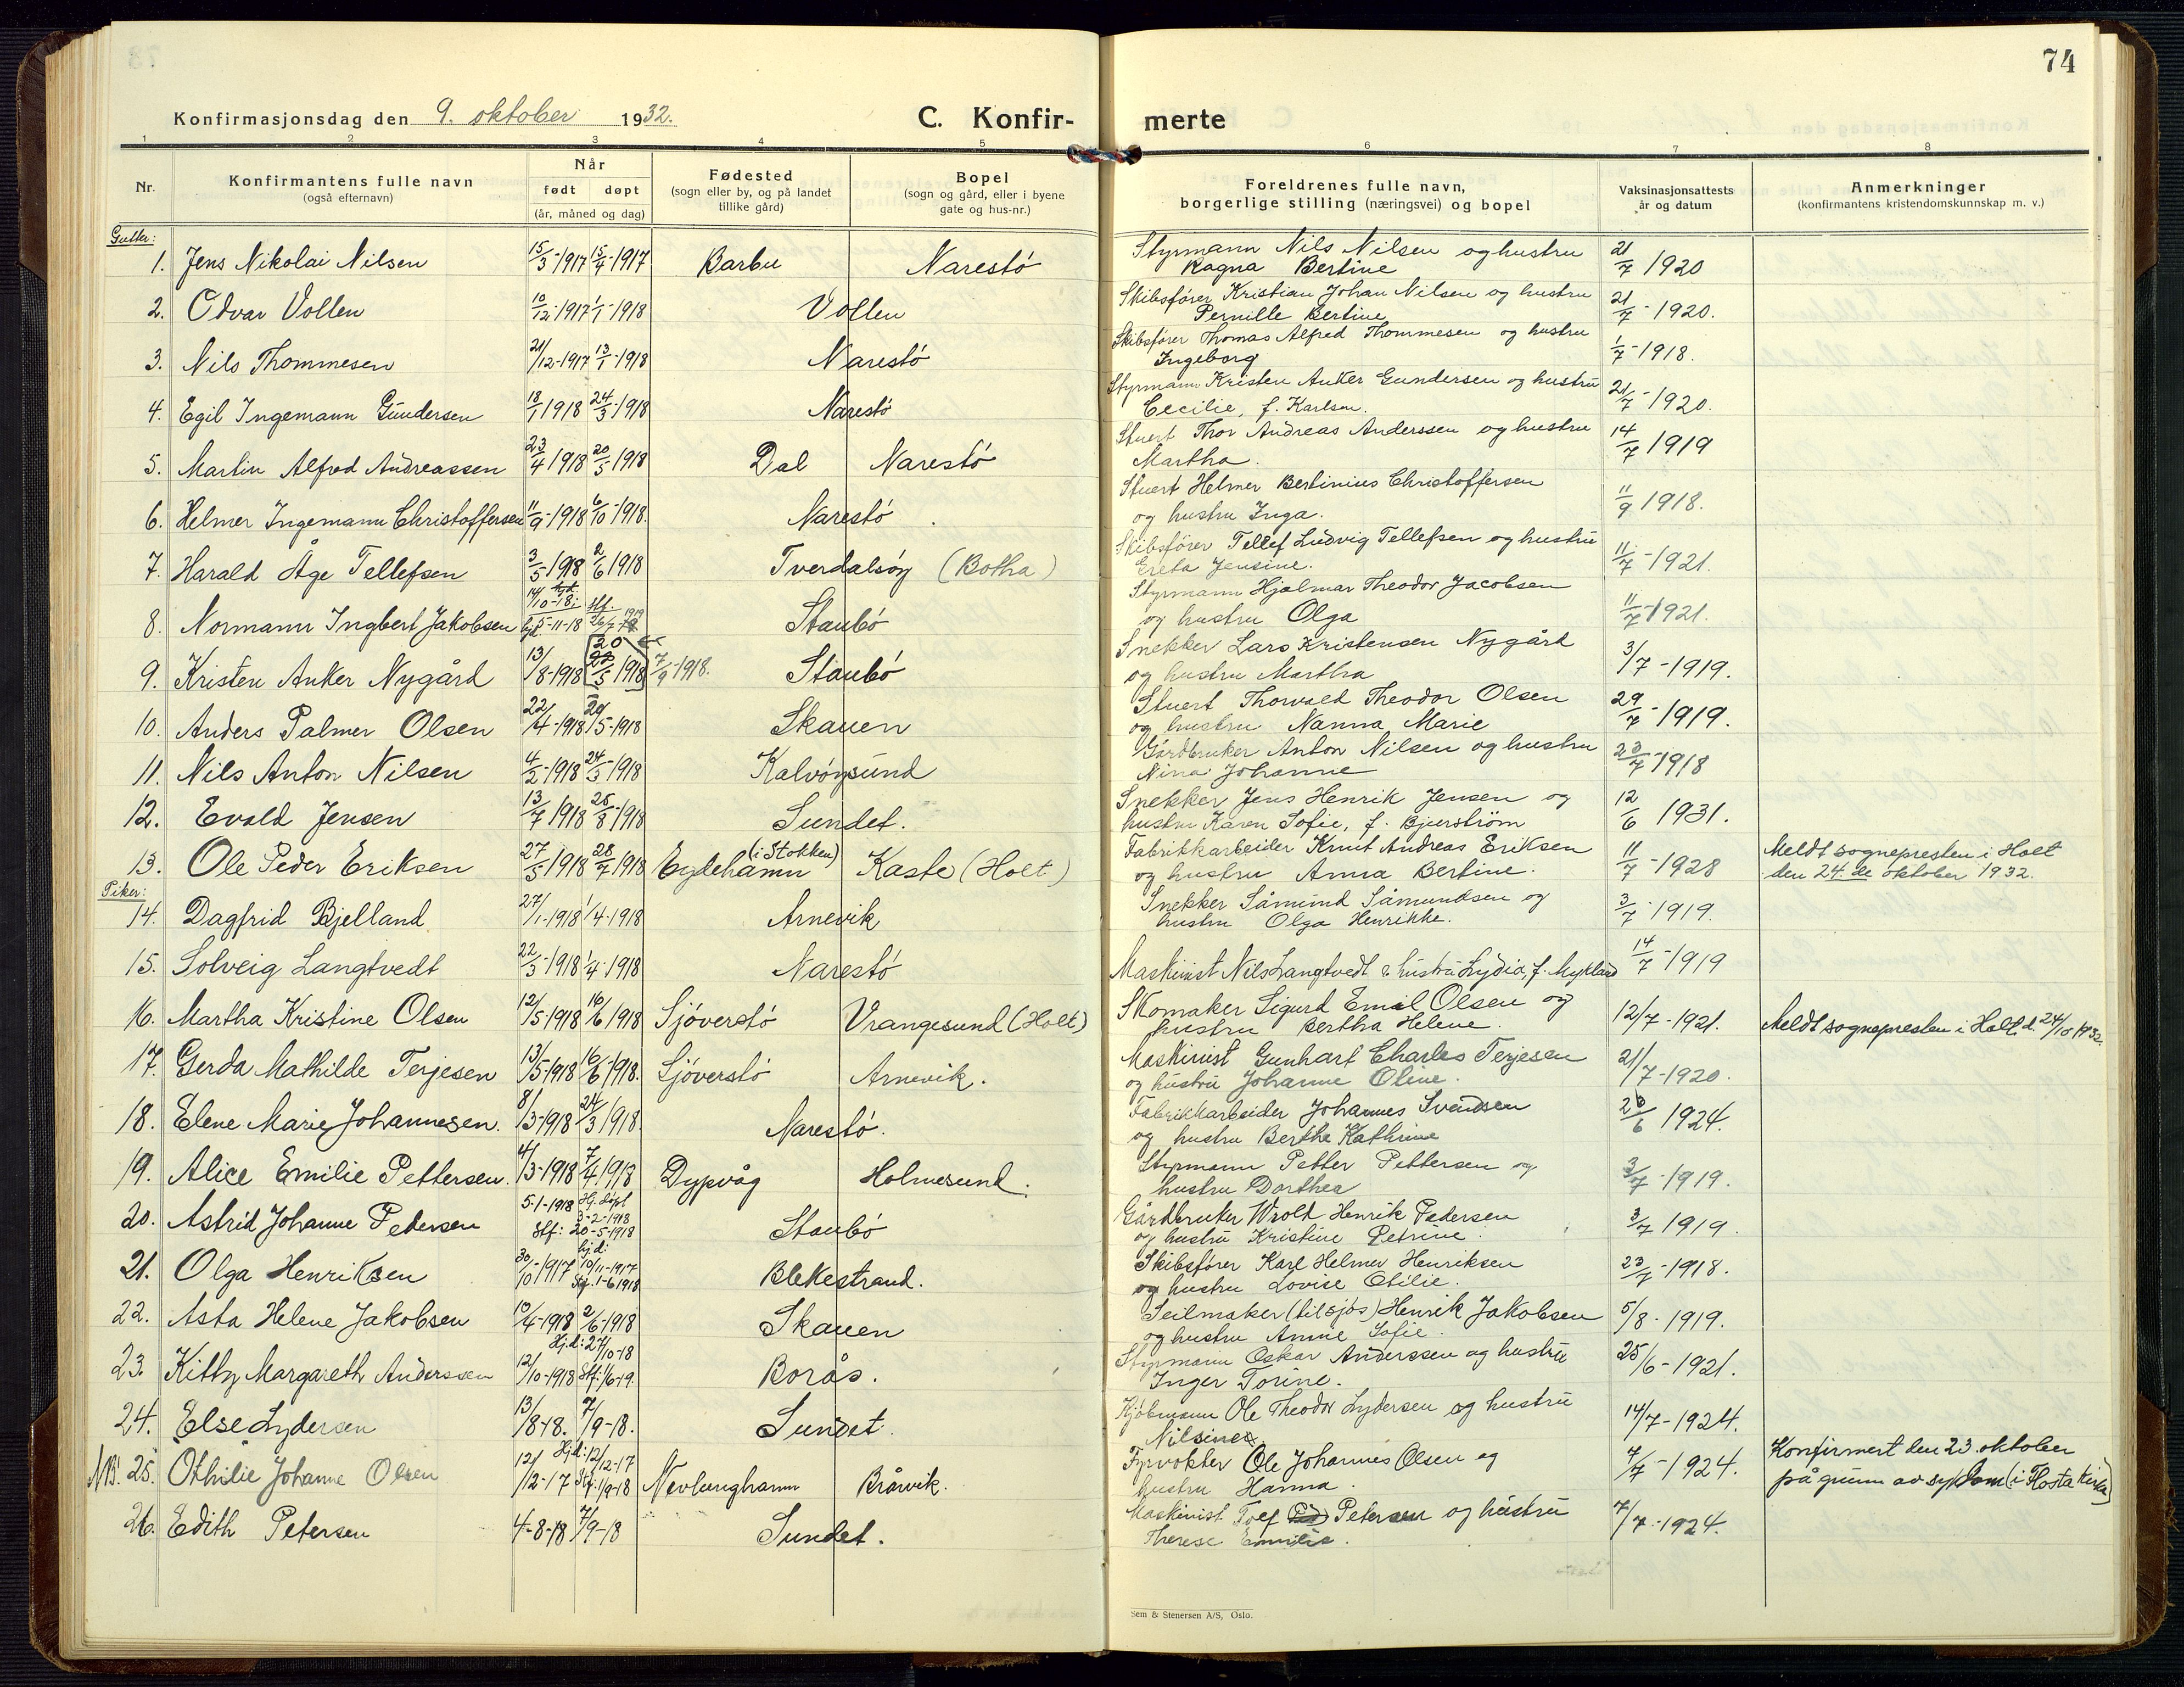 74
Konfirmasjonsdag den 9. oktober 1932.
C. Konfir-
merte
1 2 3 4 5 6 7 8
Nr.
Konfirmantens fulle navn
(også efternavn)
Når
født døpt
(år, måned og dag)
Fødested
(sogn eller by, og på landet
tillike gård)
Bopel
(sogn og gård, eller i byene
gate og hus-nr.)
Foreldrenes fulle navn,
borgerlige stilling (næringsvei) og bopel
Vaksinasjonsattests
år og datum
Anmerkninger
(konfirmantens kristendomskunnskap m. v.)
Gutter:
1. Jens Nikolai Nilsen 15/3-1917 15/4-1917 Barbu Narestö Styrmann Nils Nilsen og hustru 21/7 1920
Ragna Bertine
2. Odvar Vollen 10/12-1917 1/1-1918 Vollen Skibsfører Kristian Johan Nilsen og hustru 21/7-1920.
Pernille Bertine
3. Nils Thommesen 21/12-1917 13/1-1918 Narestö Skibsfører Thomas Alfred Thommesen og hustru 1/7-1918.
Ingeborg
4. Egil Ingemann Gundersen 18/1 1918 24/3-1918 Narestö Styrmann Kristen Anker Gundersen og hustru 21/7-1920.
Cecilie, f. Karlsen.
5. Martin Alfred Andreassen 23/4 1918 20/5-1918 Dal Narestö Stuert Thor Andreas Anderssen og hustru 14/7 1919
Martha.
6. Helmer Ingemann Christoffersen 11/9-1918 6/10-1918. Narestö Stuert Helmer Bertinius Christoffersen 11/9 1918.
og hustru Inga.
7. Harald Åge Tellefsen 3/5-1918 2/6 1918 Tverdalsöy (Botha) Skibsfører Tellef Ludvig Tellefsen og hustru 11/7-1921.
Greta Jensine.
8. Normann Ingbert Jakobsen 14/10-18 Staubö Styrmann Hjalmar Theodor Jacobsen 11/7-1921.
og hustru Olga
9. Kristen Anker Nygård 13/8-1918 20/5 1918 7/9-1918. Staubö Snekker Lars Kristensen Nygård 3/7-1919.
og hustru Martha
10. Anders Palmer Olsen 22/4-1918 20/5-1918 Skauen Stuert Thorvald Theodor Olsen 29/7-1919.
og hustru Nanna Marie
11. Nils Anton Nilsen 4/2-1918 24/3-1918 Kalvöysund Gårdbruker Anton Nilsen og hustru 23/7-1918
Nina Johanne
12. Evald Jensen 13/7 1918 25/8-1918 Sundet. Snekker Jens Henrik Jensen og 12/6 1931.
hustru Karen Sofie, f. Bjuerström
13. Ole Peder Eriksen 27/5-1918 28/7-1918 Eydehamn (i Stokken) Kaste (Holt) Fabrikkarbeider Knut Andreas Eriksen 11/7-1928 Meldt sognepresten i Holt
og hustru Anna Bertine. den 24. de oktober 1932.
Piker:
14. Dagfrid Bjelland 27/1-1918 1/4-1918 Arnevik Snekker Såmund Såmundsen og 3/7-1919.
hustru Olga Henrikke.
15. Solveig Langtvedt 22/3-1918 1/4-1918 Narestö Maskinist Nils Langtvedt & hustru Lydia, f. Mykland 14/7-1919
16. Martha Kristine Olsen 12/5-1918 16/6 1918 Sjöverstö Vrangesund (Holt) Skomaker Sigurd Emil Olsen og 12/7-1921. Meldt sognepresten i Holt d. 24/10 1932.
hustru Bertha Helene.
17. Gerda Mathilde Terjesen 13/5-1918 16/6-1918. Sjöverstö Arnevik. Maskinist Gunhart Charles Terjesen 21/7-1920.
og hustru Johanne Oline.
18. Elene Marie Johannesen. 8/3-1918 24/3 1918. Narestö. Fabrikkarbeider Johannes Svendsen 26/6 1924.
og hustru Berthe Kathrine
19. Alice Emilie Pettersen. 4/3-1918 7/4-1918 Dypvåg Holmesund. Styrmann Petter Pettersen og 3/7-1919.
hustru Dorthea
20. Astrid Johanne Pedersen 5-1-1918 Hj. döpt 3-2-1918 Stf: 20-5-1918 Staubö Gårdbruker Wrold Henrik Pedersen 3/7 1919.
og hustru Kristine Petrine.
21. Olga Henriksen 30/10-1917 hj.d: 10/11-1917 Stf. 1-6 1918 Blekestrand. Skibsfører Karl Helmer Henriksen 23/7-1918.
og hustru Lovise Otilie.
22. Asta Helene Jakobsen 10/4-1918 2/6-1918 Skauen Seilmaker (til sjøs) Henrik Jakobsen 5/8-1919.
og hustru Annie Sofie.
23. Kitty Margareth Anderssen 12/10-1918 Hj.d: 27/10-18 Stf: 1/6-19. Borås. Styrmann Oskar Anderssen og hustru 25/6-1921.
Inger Torine.
24. Else Lydersen 13/8-18. 7/9-18. Sundet. Kjöbmann Ole Theodor Lydersen og hustru 14/7-1924.
Nilsine
NB! 25. Othilie Johanne Olsen 12/12-17 Hj.d: 12/12-17 Stf: 1/9-18 Nevlunghamn Bråvik. Fyrvokter Ole Johannes Olsen og 7/7-1924. Konfirmert den 23. oktober
hustru Hanna. på grunn av sykdom (i Flosta kirke)
26. Edith Petersen 4-8-18 7/9-18 Sundet. Maskinist Toef Petersen og hustru 7/7-1924.
Therese Emilie.
Sem & Stenersen A/S, Oslo.